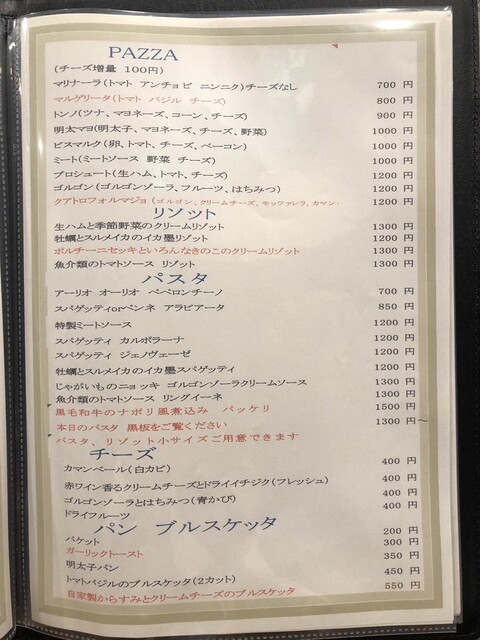 PAZZA
(チーズ増量 100円)
マリナーラ(トマト アンチョビ ニンニク)チーズなし 700 円
マルゲリータ(トマト バジル チーズ) 800 円
トンノ(ツナ、マヨネーズ、コーン、チーズ) 900 円
明太マヨ(明太子、マヨネーズ、チーズ、野菜) 1000 円
ビスマルク(卵、トマト、チーズ、ベーコン) 1000 円
ミート(ミートソース 野菜 チーズ) 1000 円
プロシュート(生ハム、トマト、チーズ) 1200 円
ゴルゴン(ゴルゴンゾーラ、フルーツ、はちみつ) 1200 円
クアトロフォルマジョ(ゴルゴン、クリームチーズ、モッツァレラ、カマン 1200 円
リゾット
生ハムと季節野菜のクリームリゾット 1300 円
牡蠣とスルメイカのイカ墨リゾット 1200 円
ポルチーニセッキといろんなきのこのクリームリゾット 1300 円
魚介類のトマトソース リゾット 1300 円
パスタ
アーリオ オーリオ ペペロンチーノ 700 円
スパゲッティorペンネ アラビアータ 850 円
特製ミートソース 1200 円
スパゲッティ カルボラーナ 1200 円
スパゲッティ ジェノヴェーゼ 1200 円
牡蠣とスルメイカのイカ墨スパゲッティ 1200 円
じゃがいものニョッキ ゴルゴンゾーラクリームソース 1300 円
魚介類のトマトソース リングイーネ 1300 円
黒毛和牛のナポリ風煮込み パッケリ 1500 円
本日のパスタ 黒板をご覧ください 1300 円～
パスタ、リゾット小サイズご用意できます
チーズ
カマンベール(白カビ) 400 円
赤ワイン香るクリームチーズとドライイチジク(フレッシュ) 400 円
ゴルゴンゾーラとはちみつ(青かび) 400 円
ドライフルーツ 400 円
パン ブルスケッタ
バケット 200 円
ガーリックトースト 300 円
明太子パン 350 円
トマトバジルのブルスケッタ(2カット) 450 円
自家製からすみとクリームチーズのブルスケッタ 550 円